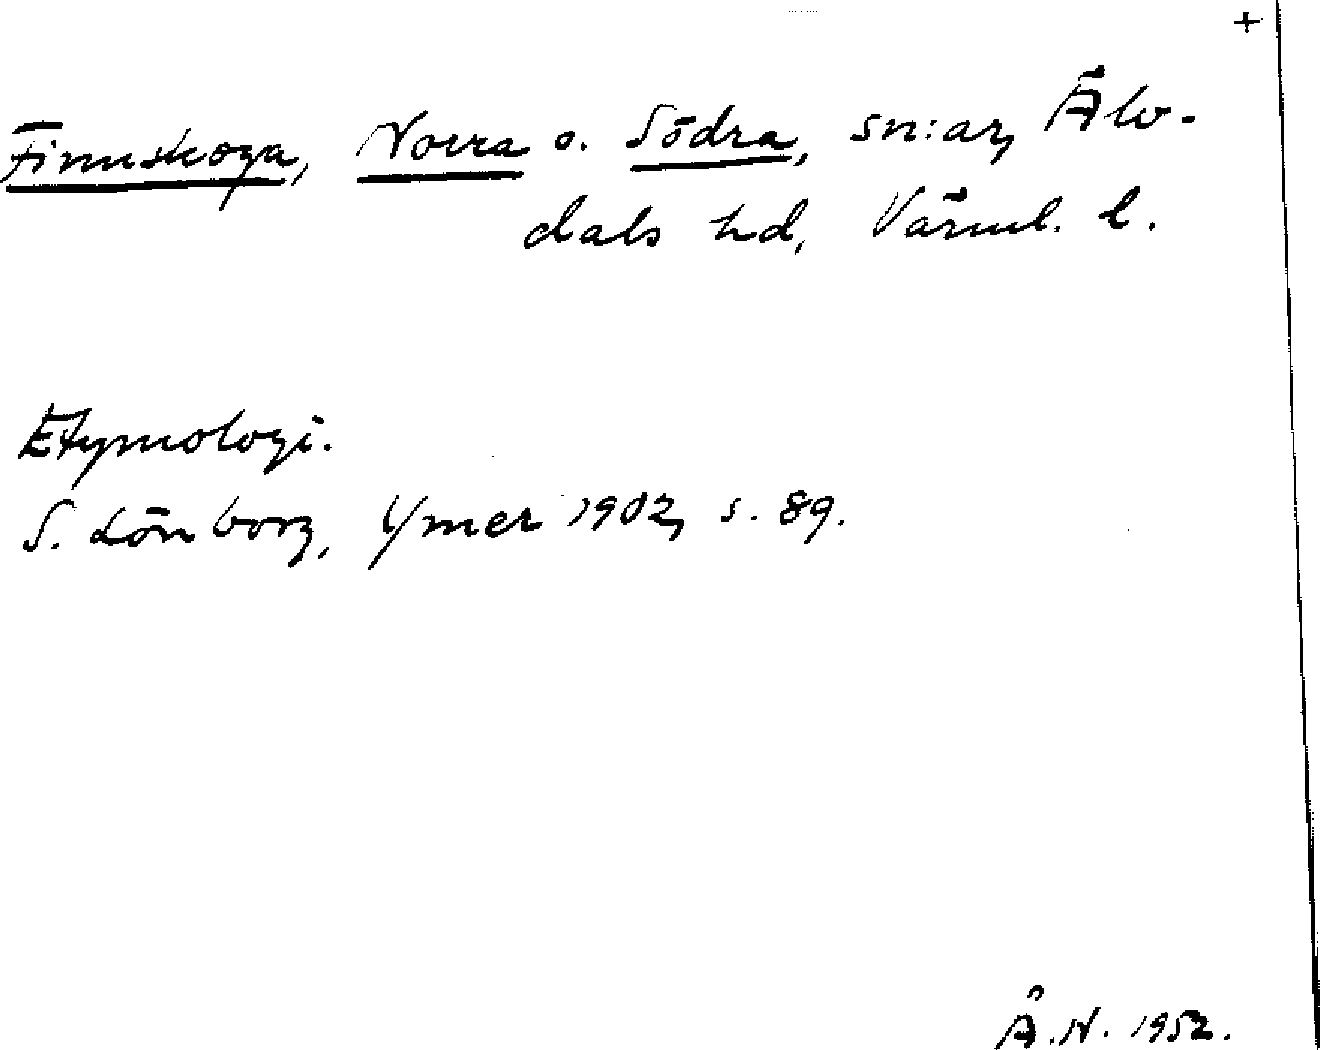 +
Finnskoga, Norra o. Södra, sn:ar, Älv-
dals hd, Värml. l.
Etymologi.
S. Lönborg, Ymer 1902, s. 89.
Å.N. 1952.